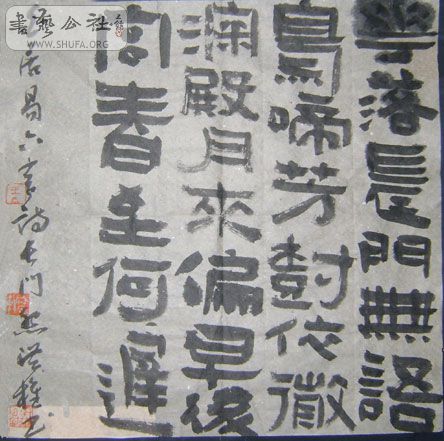 書藝公社
WWW.SHUFA.ORG
華落長門無語
鳥啼芳樹依微
深殿月來偏早後
宮春至何遲
居易六言詩長門怨洪